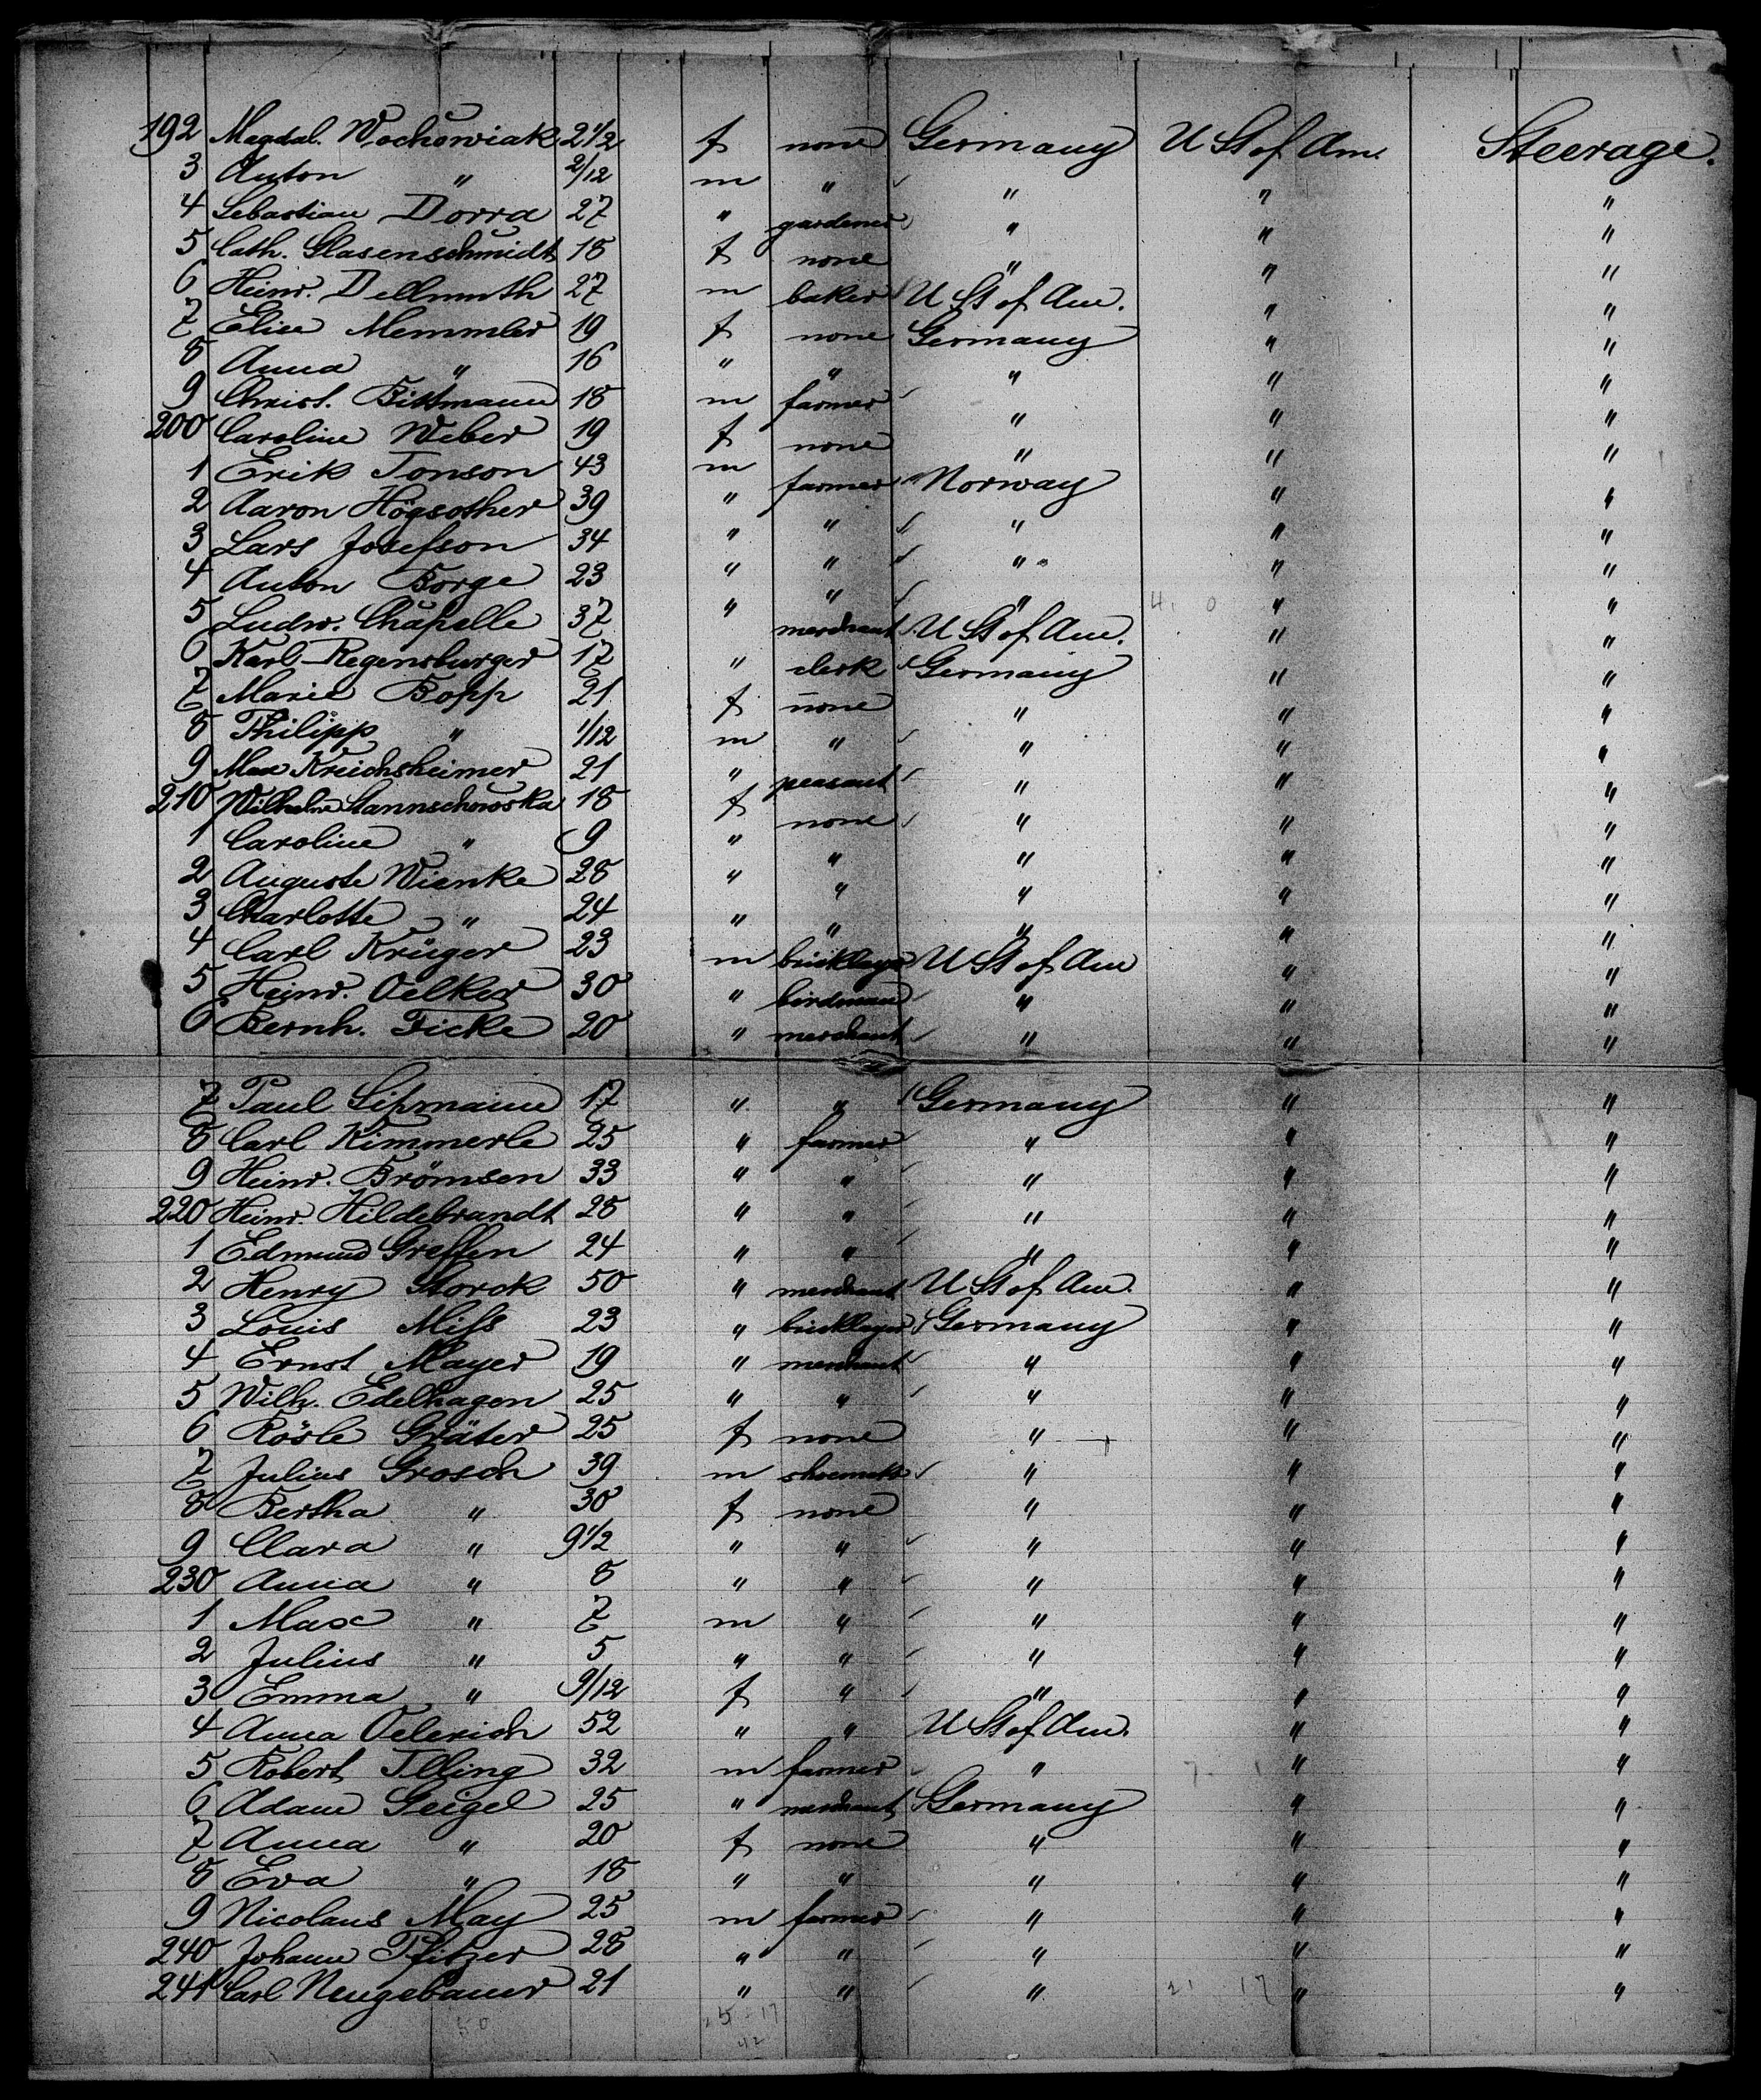 192 Magdal. Wochowiak 2 1/2 f none Germany U St of Am. Steerage.
3 Anton " 2/12 m " " " "
4 Sebastian Dorra 27 " gardener " " "
5 Cath. Glasenschmidt 18 f none " " "
6 Heinr. Dellmuth 27 m baker U St of Am. " "
7 Elise Memmler 19 f none Germany " "
8 Anna " 16 " " " " "
9 Christ. Bittmann 18 m farmer " " "
200 Caroline Weber 19 f none " " "
1 Erik Tonson 43 m farmer Norway " "
2 Aaron Högsother 39 " " " " "
3 Lars Josefson 34 " " " " "
4 Anton Borge 23 " " " " "
5 Ludw. Chapelle 37 " merchant U St of Am. " "
6 Karl Regensburger 17 " clerk Germany " "
7 Marie Bopp 21 f none " " "
8 Philipp " 1/12 m " " " "
9 Max Kreichsheimer 21 " peasant " " "
210 Wilhelm Stannschowska 18 f none " " "
1 Caroline " 9 " " " " "
2 Auguste Wienke 28 " " " " "
3 Charlotte " 24 " " " " "
4 Carl Krüger 23 m bricklayer U St of Am " "
5 Heinr. Oelker 30 " birdman " " "
6 Bernh. Ficke 20 " merchant " " "
7 Paul Lipmann 17 " " Germany " "
8 Carl Kimmerle 25 " farmer " " "
9 Heinr. Brömsen 33 " " " " "
220 Heinr. Hildebrandt 28 " " " " "
1 Edmund Greffen 24 " " " " "
2 Henry Storck 50 " merchant U St of Am. " "
3 Louis Miss 23 " bricklayer Germany " "
4 Ernst Mayer 19 " merchant " " "
5 Wilh. Edelhagen 25 " " " " "
6 Rösle Gräter 25 f none " " "
7 Julius Grosch 39 m shoemak " " "
8 Bertha " 30 f none " " "
9 Clara " 9 1/2 " " " " "
230 Anna " 8 " " " " "
1 Max " 7 m " " " "
2 Julius " 5 " " " " "
3 Emma " 9/12 f " " " "
4 Anna Oelerich 52 " " U St of Am. " "
5 Robert Illing 32 m farmer " " "
6 Adam Geigel 25 " merchant Germany " "
7 Anna " 20 f none " " "
8 Eva " 18 " " " " "
9 Nicolaus May 25 m farmer " " "
240 Johann Pfitzer 28 " " " " "
241 Carl Neugebauer 21 " " " " "